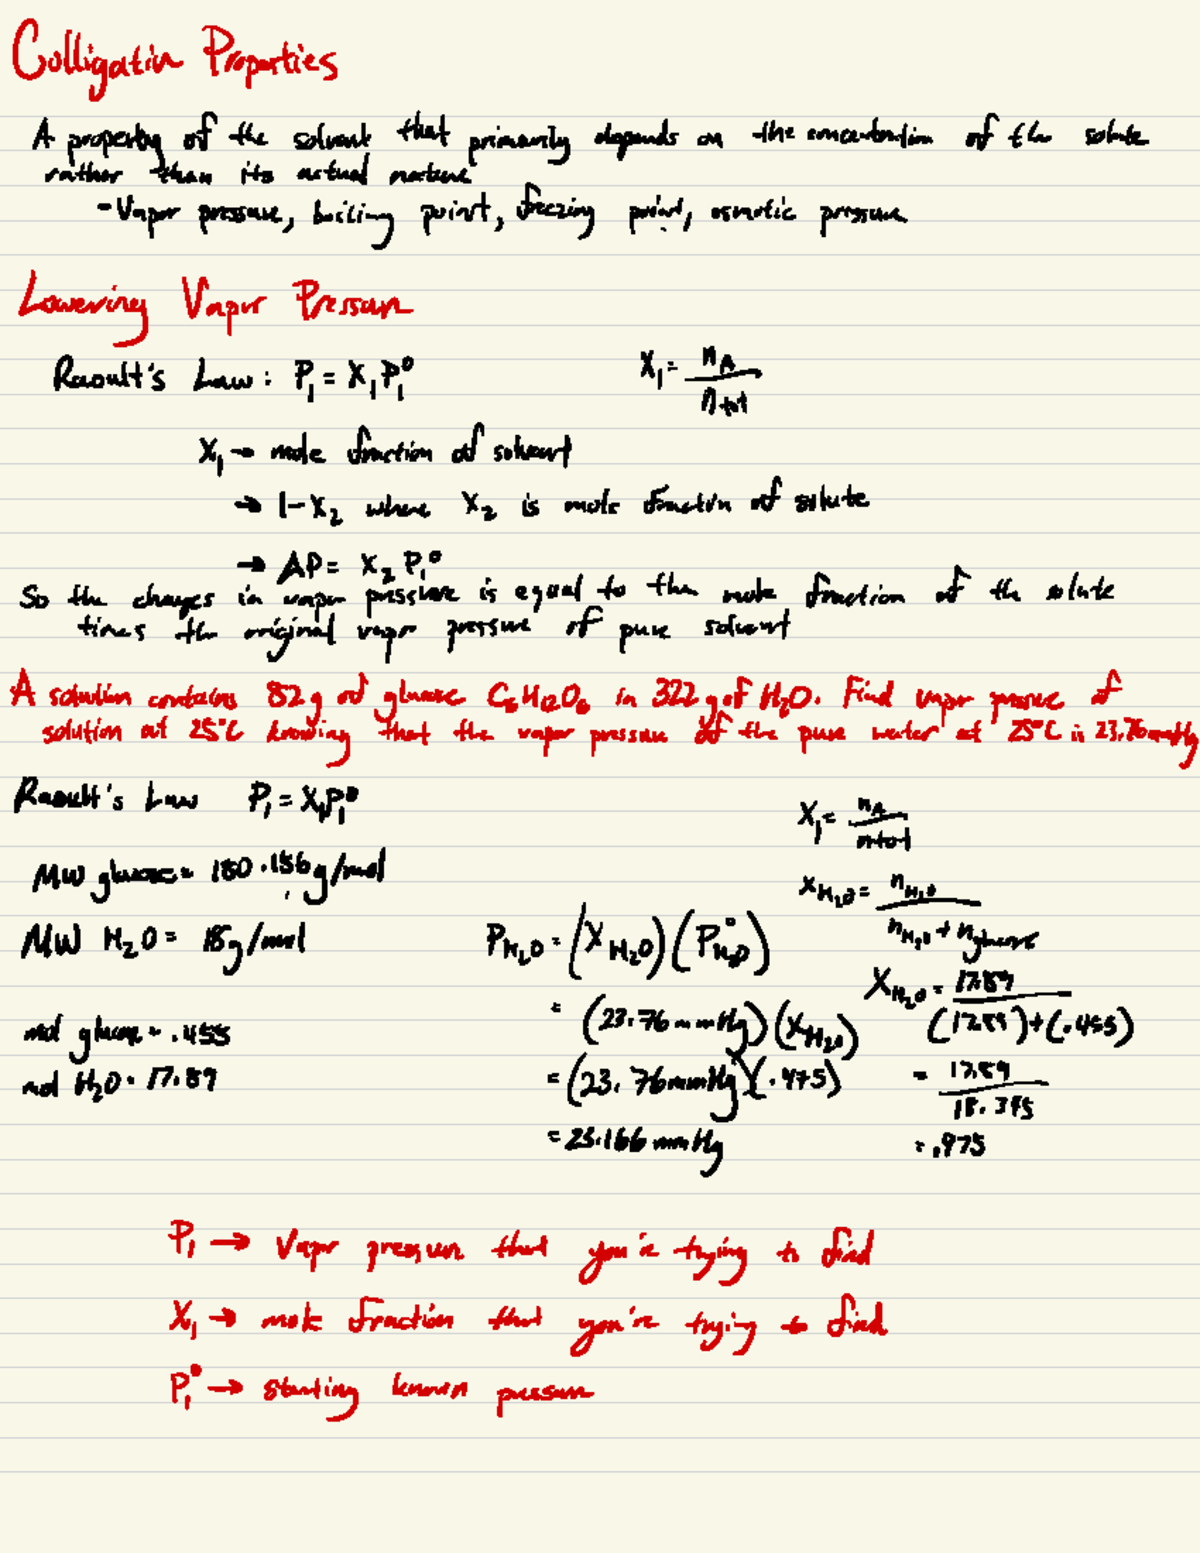 Colligative Properties
A property of the solvent that primarily depends on the concentration of the solute
rather than its actual nature
- Vapor pressure, boiling point, freezing point, osmotic pressure
Lowering Vapor Pressure
Raoult's Law: P₁ = X₁P₁° X₁ = nA / ntot
X₁ → mole fraction of solvent
→ 1-X₂ where X₂ is mole fraction of solute
→ ΔP = X₂ P₁°
So the changes in vapor pressure is equal to the mole fraction of the solute
times the original vapor pressure of pure solvent
A solution contains 82g of glucose C₆H₁₂O₆ in 322g of H₂O. Find vapor pressure of
solution at 25°C knowing that the vapor pressure of the pure water at 25°C is 23.76mmHg
Raoult's Law P₁ = X₁P₁° X₁ = nA / ntot
MW glucose = 180.156g/mol
XH₂O = nH₂O / nH₂O + nglucose
MW H₂O = 18g/mol PH₂O = (XH₂O)(P°H₂O)
XH₂O = 17.89 / (17.89)+(.455)
mol glucose = .455 = (23.76mmHg)(XH₂O)
mol H₂O = 17.89 = (23.76mmHg)(.975) = 17.89 / 18.345
= 23.166 mmHg = .975
P₁ → Vapor pressure that you're trying to find
X₁ → mole fraction that you're trying to find
P₁° → starting known pressure